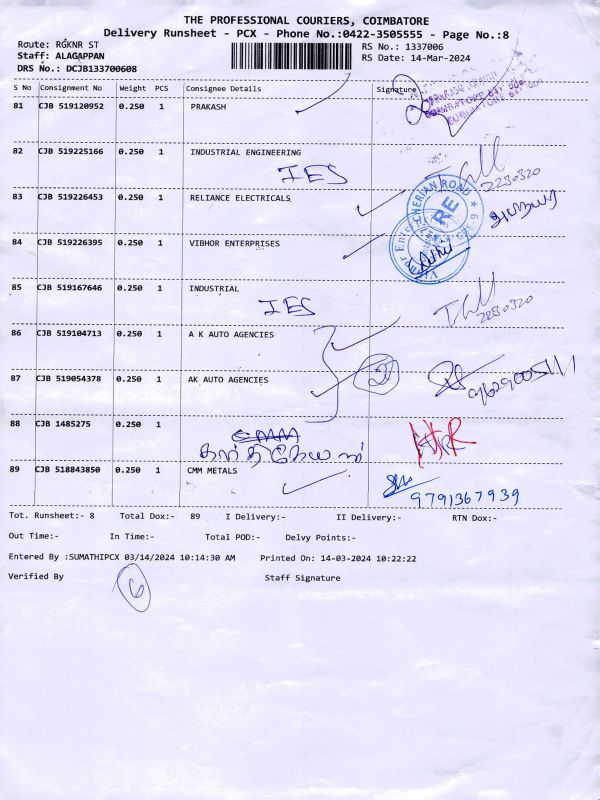 THE PROFESSIONAL COURIERS, COIMBATORE
Delivery Runsheet - PCX - Phone No.:0422-3505555 - Page No.:8
Route: RGKNR ST
RS No.: 1337006
Staff: ALAGAPPAN
RS Date: 14-Mar-2024
DRS No.: DCJB133700608
S No Consignment No Weight PCS Consignee Details Signature
81 CJB 519120952 0.250 1 PRAKASH
82 CJB 519225166 0.250 1 INDUSTRIAL ENGINEERING
IES
2230320
83 CJB 519226453 0.250 1 RELIANCE ELECTRICALS
84 CJB 519226395 0.250 1 VIBHOR ENTERPRISES
85 CJB 519167646 0.250 1 INDUSTRIAL
IES
2230320
86 CJB 519104713 0.250 1 A K AUTO AGENCIES
2
87 CJB 519054378 0.250 1 AK AUTO AGENCIES
88 CJB 1485275 0.250 1
CMM
கார்திகேயன்
89 CJB 518843850 0.250 1 CMM METALS
9791367939
Tot. Runsheet:- 8 Total Dox:- 89 I Delivery:- II Delivery:- RTN Dox:-
Out Time:- In Time:- Total POD:- Delvy Points:-
Entered By :SUMATHIPCX 03/14/2024 10:14:30 AM Printed On: 14-03-2024 10:22:22
Verified By Staff Signature
6